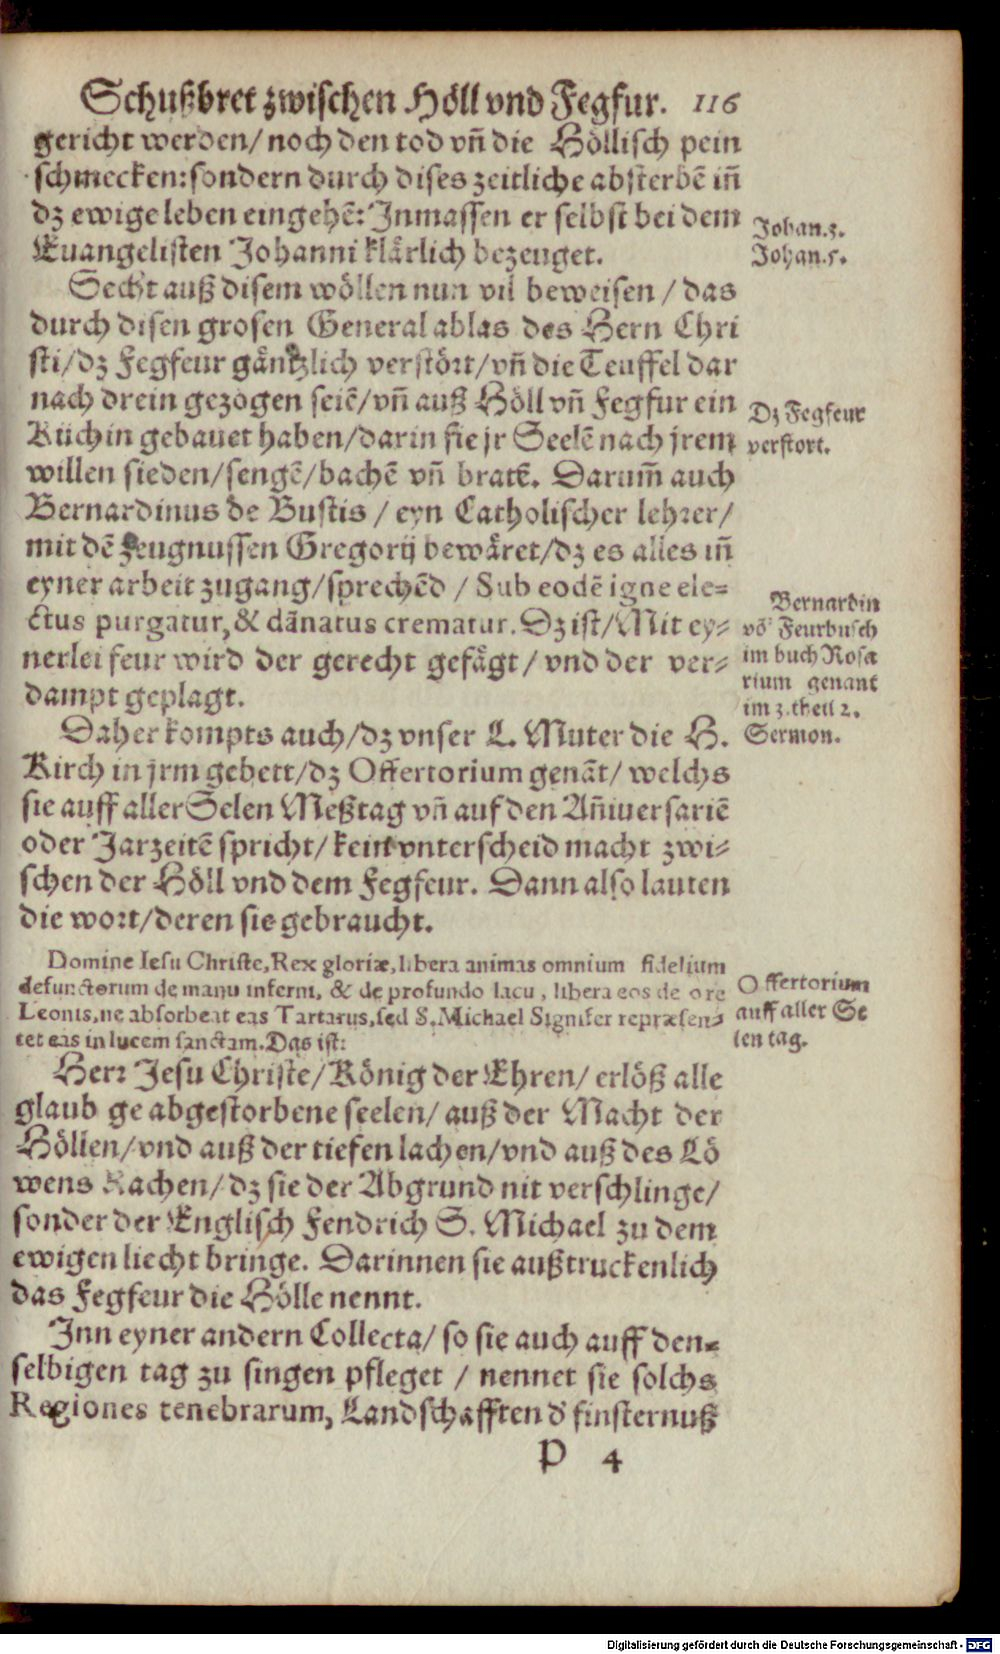 Schußbret zwischen Höll vnd Fegfur. 116
gericht werden/ noch den tod vñ die Höllisch pein
schmecken: sondern durch dises zeitliche absterbē iñ
dz ewige leben eingehē: Inmassen er selbst bei dem
Johan.3.
Euangelisten Johanni klärlich bezeuget.
Johan.5.
Secht auß disem wöllen nun vil beweisen / das
durch disen grosen General ablas des Hern Chri
sti/ dz Fegfeur gäntzlich verstört/ vñ die Teuffel dar
nach drein gezogen seiē/ vñ auß Höll vñ Fegfur ein
Dz Fegfeur
Kuchin gebauet haben/ darin sie jr Seelē nach jrem
verstort.
willen sieden/ sengē/ bachē vñ bratē. Darum̃ auch
Bernardinus de Bustis / eyn Catholischer lehrer/
mit dē Zeugnussen Gregorij bewäret/ dz es alles iñ
eyner arbeit zugang/ sprechēd / Sub eodē igne ele=
ctus purgatur, & dãnatus crematur. Dz ist/ Mit ey=
nerlei feur wird der gerecht gefägt / vnd der ver=
dampt geplagt.
Bernardin
võ Feurbusch
im buch Rosa
rium genant
im 3.theil 2.
Sermon.
Daher kompts auch/ dz vnser L. Muter die H.
Kirch in jrm gebett/ dz Offertorium genãt/ welchs
sie auff aller Selen Meßtag vñ auf den Añiuersariē
oder Jarzeitē spricht/ kein vnterscheid macht zwi=
schen der Höll vnd dem Fegfeur. Dann also lauten
die wort/ deren sie gebraucht.
Domine Iesu Christe, Rex gloriæ, libera animas omnium fidelium
defunctorum de manu inferni, & de profundo lacu, libera eos de ore
Leonis, ne absorbeat eas Tartarus, sed S. Michael Signifer repræsen=
tet eas in lucem sanctam. Das ist:
Offertorium
auff aller Se
len tag.
Herr Jesu Christe/ König der Ehren/ erlöß alle
glaub ge abgestorbene seelen/ auß der Macht der
Höllen/ vnd auß der tiefen lachen/ vnd auß des Lö
wens Rachen/ dz sie der Abgrund nit verschlinge/
sonder der Englisch Fendrich S. Michael zu dem
ewigen liecht bringe. Darinnen sie außtruckenlich
das Fegfeur die Hölle nennt.
Inn eyner andern Collecta/ so sie auch auff den=
selbigen tag zu singen pfleget / nennet sie solchs
Regiones tenebrarum, Landschafften d' finsternuß
P 4
Digitalisierung gefördert durch die Deutsche Forschungsgemeinschaft - DFG